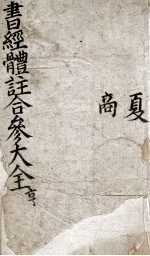 夏
商
書經體註合參大全亨